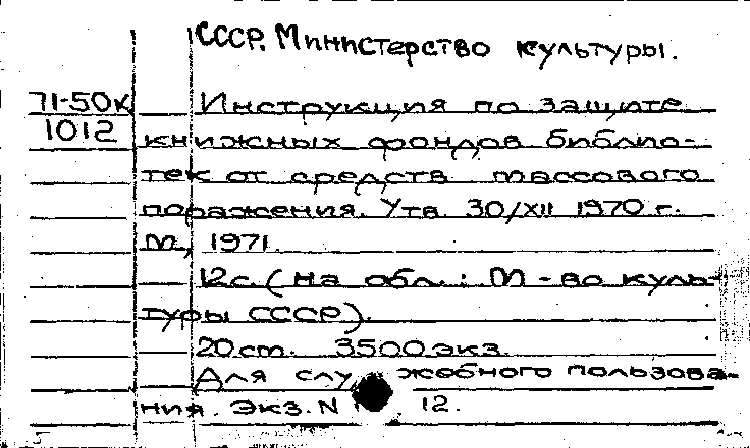 СССР. Министерство культуры.
71-50к Инструкция по защите
1012 книжных фондов библио-
тек от средств массового
поражения. Утв. 30/XII 1970 г.
М, 1971.
12с. (На обл.: М-во куль-
туры СССР).
20 cm. 3500 экз.
Для служебного пользова-
ния. Экз. N 12.